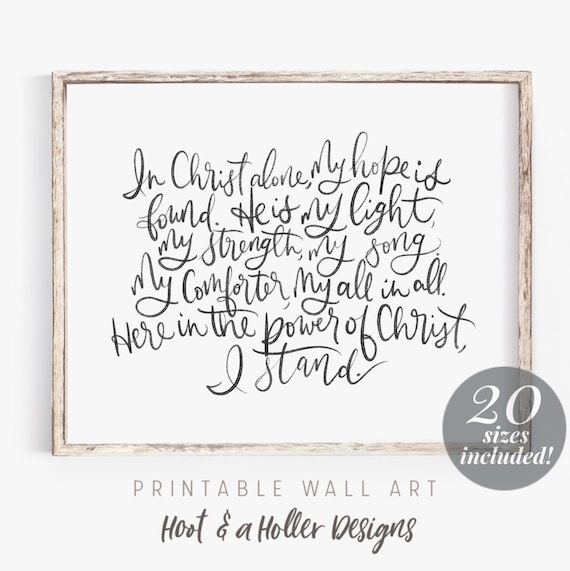 In Christ alone, My hope is
found. He is my light,
my strength, my song.
My Comforter, My all in all.
Here in the power of Christ,
I stand.
20
sizes
included!
PRINTABLE WALL ART
Hoot & a Holler Designs